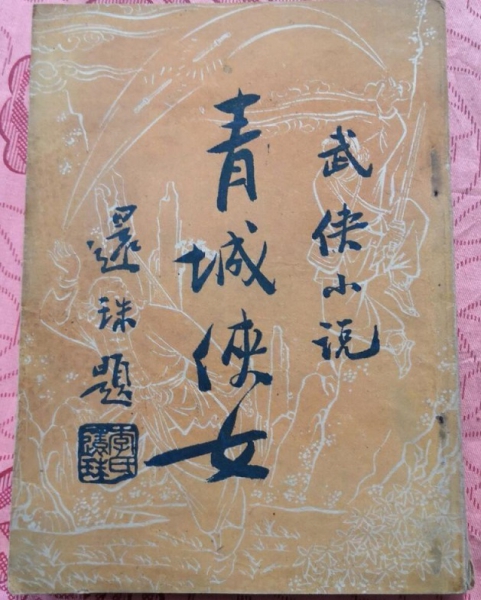 武侠小说
青城俠女
還珠題
李氏
還珠